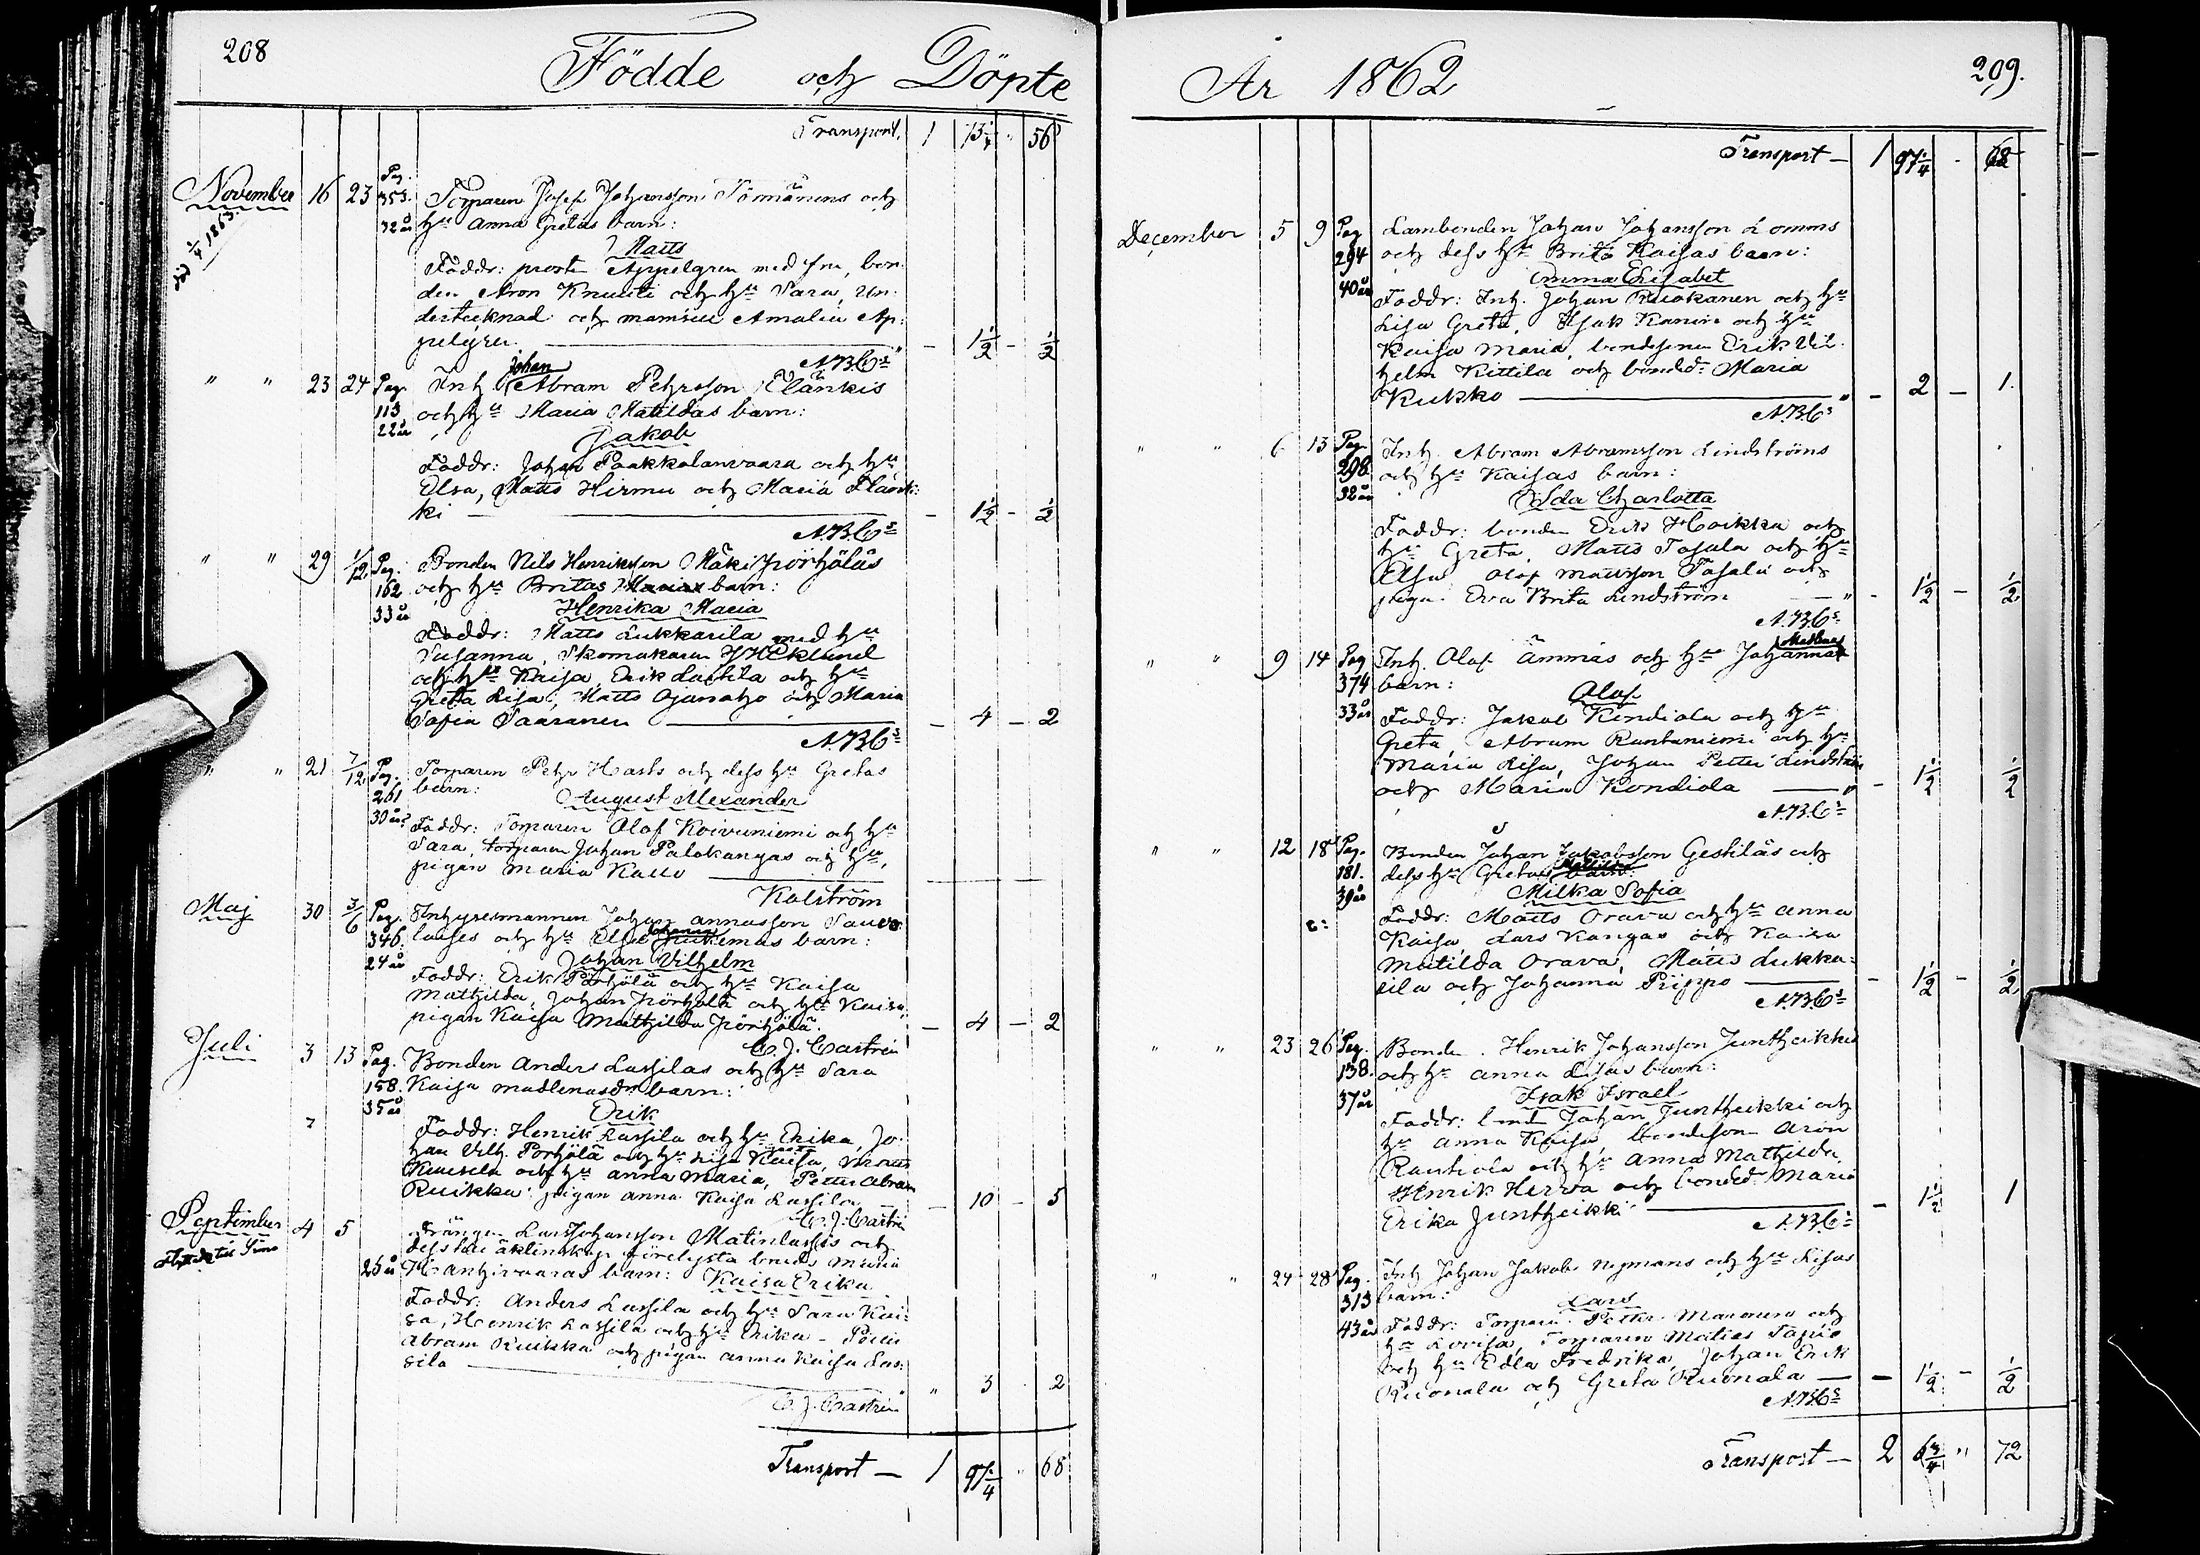 208
Födde och Döpte
Transport. 1 13 1/4 " 56
November 16 23 Pag. 353. 32 år Torparen Josef Johansson Törmänens och
hu Anna Gretas barn:
Matts
Faddr: prosten Appelgren med fru, bon-
den Aron Knuuti och hu Sara, Un-
dertecknad och mamsell Amalia Ap-
pelgren. — 1 1/2 — 1/2
" " 23 24 Pag. 113 22 år Inh. Johan Abram Pehrsson Flänkis
och hu Maria Matildas barn:
Jakob
Faddr: Johan Paakkolanvaara och hu
Elsa, Matts Hirmu och Maria Flänk-
ki — 1 1/2 — 1/2
" " 29 1/12 Pag. 162 33 år Bonden Nils Henriksson Mäki Pörhöläs
och hu Britas barn:
Henrika Maria
Faddr: Matts Lukkarila med hu
Susanna, Skomakaren Eklund
och hu Kaisa, Erik Lassila och hu
Greta Lisa, Matts Ojanaho och Maria
Sofia Saaranen — 4 — 2
" " 21 7/12 Pag. 261 30 år Torparen Pehr Hasts och dess hu Gretas
barn:
August Alexander
Faddr: Torparen Olof Koivuniemi och hu
Sara, torparen Johan Palokangas och hu,
pigan Maria Kallo
Kalström
Maj 30 3/6 Pag. 346. 24 år Inhyresmannen Johan Annasson Sauvo-
laises och hu Elsa barn:
Johan Vilhelm
Faddr: Erik Pörhölä och hu Kaisa
Mathilda, Johan Pörhölä och hu Kaisa,
pigan Kaisa Mathilda Pörhölä. — 4 — 2
C. J. Castrén
Juli 3 13 Pag. 158. 35 år Bonden Anders Lassilas och hu Sara
Kaisa Madlenasdr barn:
Erik
Faddr: Henrik Lassila och hu Erika, Jo-
han Vilh. Pörhölä och hu Lisa Kaisa,
och hu Anna Maria, Petter Abram
Ruikka pigan Anna Kaisa Lassila — 10 — 5
C. J. Castrén
September 4 5 25 år Drängen Lars Johansson Matinlassis och
dess till äktenskap förelysta bondd. Maria
barn: Kaisa Erika
Faddr: Anders Lassila och hu Sara Kai-
sa, Henrik Lassila och hu Erika — Petter
Abram Ruikka och pigan Anna Kaisa Las-
sila " 3 2
C. J. Castrén
Transport — 1 97 1/4 " 68
År 1862
209.
Transport — 1 97 1/4 - 68
December 5 9 Pag 294 40 år Lambonden Johan Johansson Lomms
och dess hu Brita Kaisas barn:
Emma Elisabet
Faddr: Inh. Johan Ruokanen och hu
Lisa Greta, Isak Kanin och hu
Kaisa Maria, bondesonen Erik Vil-
helm Kittilä och bonded. Maria
Kukko — 2 — 1.
" " 6 13 Pag. 298 32 år Inh. Abram Abramsson Lindströms
och hu Kaisas barn:
Ida Charlotta
Faddr: bonden Erik Hoikka och
hu Greta, Matts Tasala och hu
Elsa, Olof Mattsson Tasala och
pigan Eva Brita Lindström — 1 1/2 — 1/2
" " 9 14 Pag 374 33 år Inh. Olof Ämmäs och hu Johannas
barn:
Olof
Faddr: Jakob Kondiola och hu
Greta, Abram Rautaniemi och hu
Maria Lisa, Johan Petter Lindström
och Maria Kondiola — 1 1/2 1/2
" " 12 18 Pag. 181. 39 år Bonden Johan Jakobsson Gestiläs och
dess hu Gretas barn:
Milka Sofia
Faddr: Matts Orava och hu Anna
Kaisa, Lars Kangas och Kaisa
Matilda Orava, Matts Lukka-
rila och Johanna Piippo — 1 1/2 — 1/2
" " 23 26 Pag. 138. 37 år Bonden Henrik Johansson Juntheikkis
och hu Anna Lisas barn:
Isak Israel
Faddr: bond. Johan Juntheikki och
hu Anna Kaisa, bondeson Aron
Rautiola och hu Anna Mathilda,
Henrik Herva och bonded. Maria
Erika Juntheikki — 1 1/2 1
" " 24 28 Pag. 313 43 år Inh Johan Jakob Nymans och hu Lisas
barn:
Lars
Faddr: Torparen Petter Maronen och
hu Lovisa, Torparen Matias Tapio
och hu Edla Fredrika, Johan Erik
Ruonala och Greta Ruonala — 1 1/2 — 1/2
Transport — 2 6 3/4 " 72